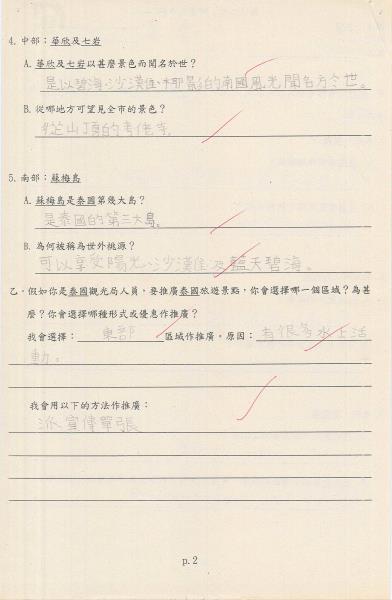 4. 中部：華欣及七岩
A. 華欣及七岩以甚麼景色而聞名於世？
是以碧海、沙漠佳、椰影的南國風光聞名方令世。
B. 從哪地方可望見全市的景色？
從山頂的考佬寺。
5. 南部：蘇梅島
A. 蘇梅島是泰國第幾大島？
是泰國的第三大島。
B. 為何被稱為世外桃源？
可以享受陽光、沙漠佳及藍天碧海。
乙．假如你是泰國觀光局人員，要推廣泰國旅遊景點，你會選擇哪一個區域？為甚
麼？你會選擇哪種形式或優惠作推廣？
我會選擇： 東部 區域作推廣。原因：有很多水上活
動。
我會用以下的方法作推廣：
派宣傳單張
p.2